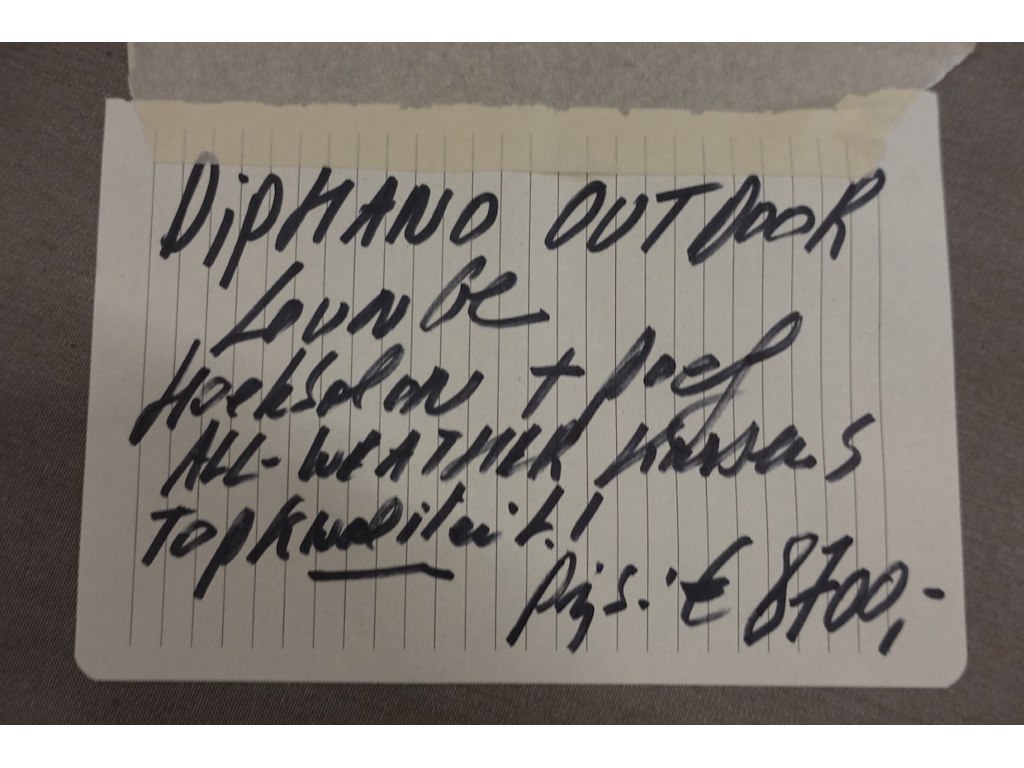 DiPHANO OUTDOOR
LOUNGE
Hoeksalon + poef
ALL-WEATHER kussens
Topkwaliteit!
Prijs: € 8700,-